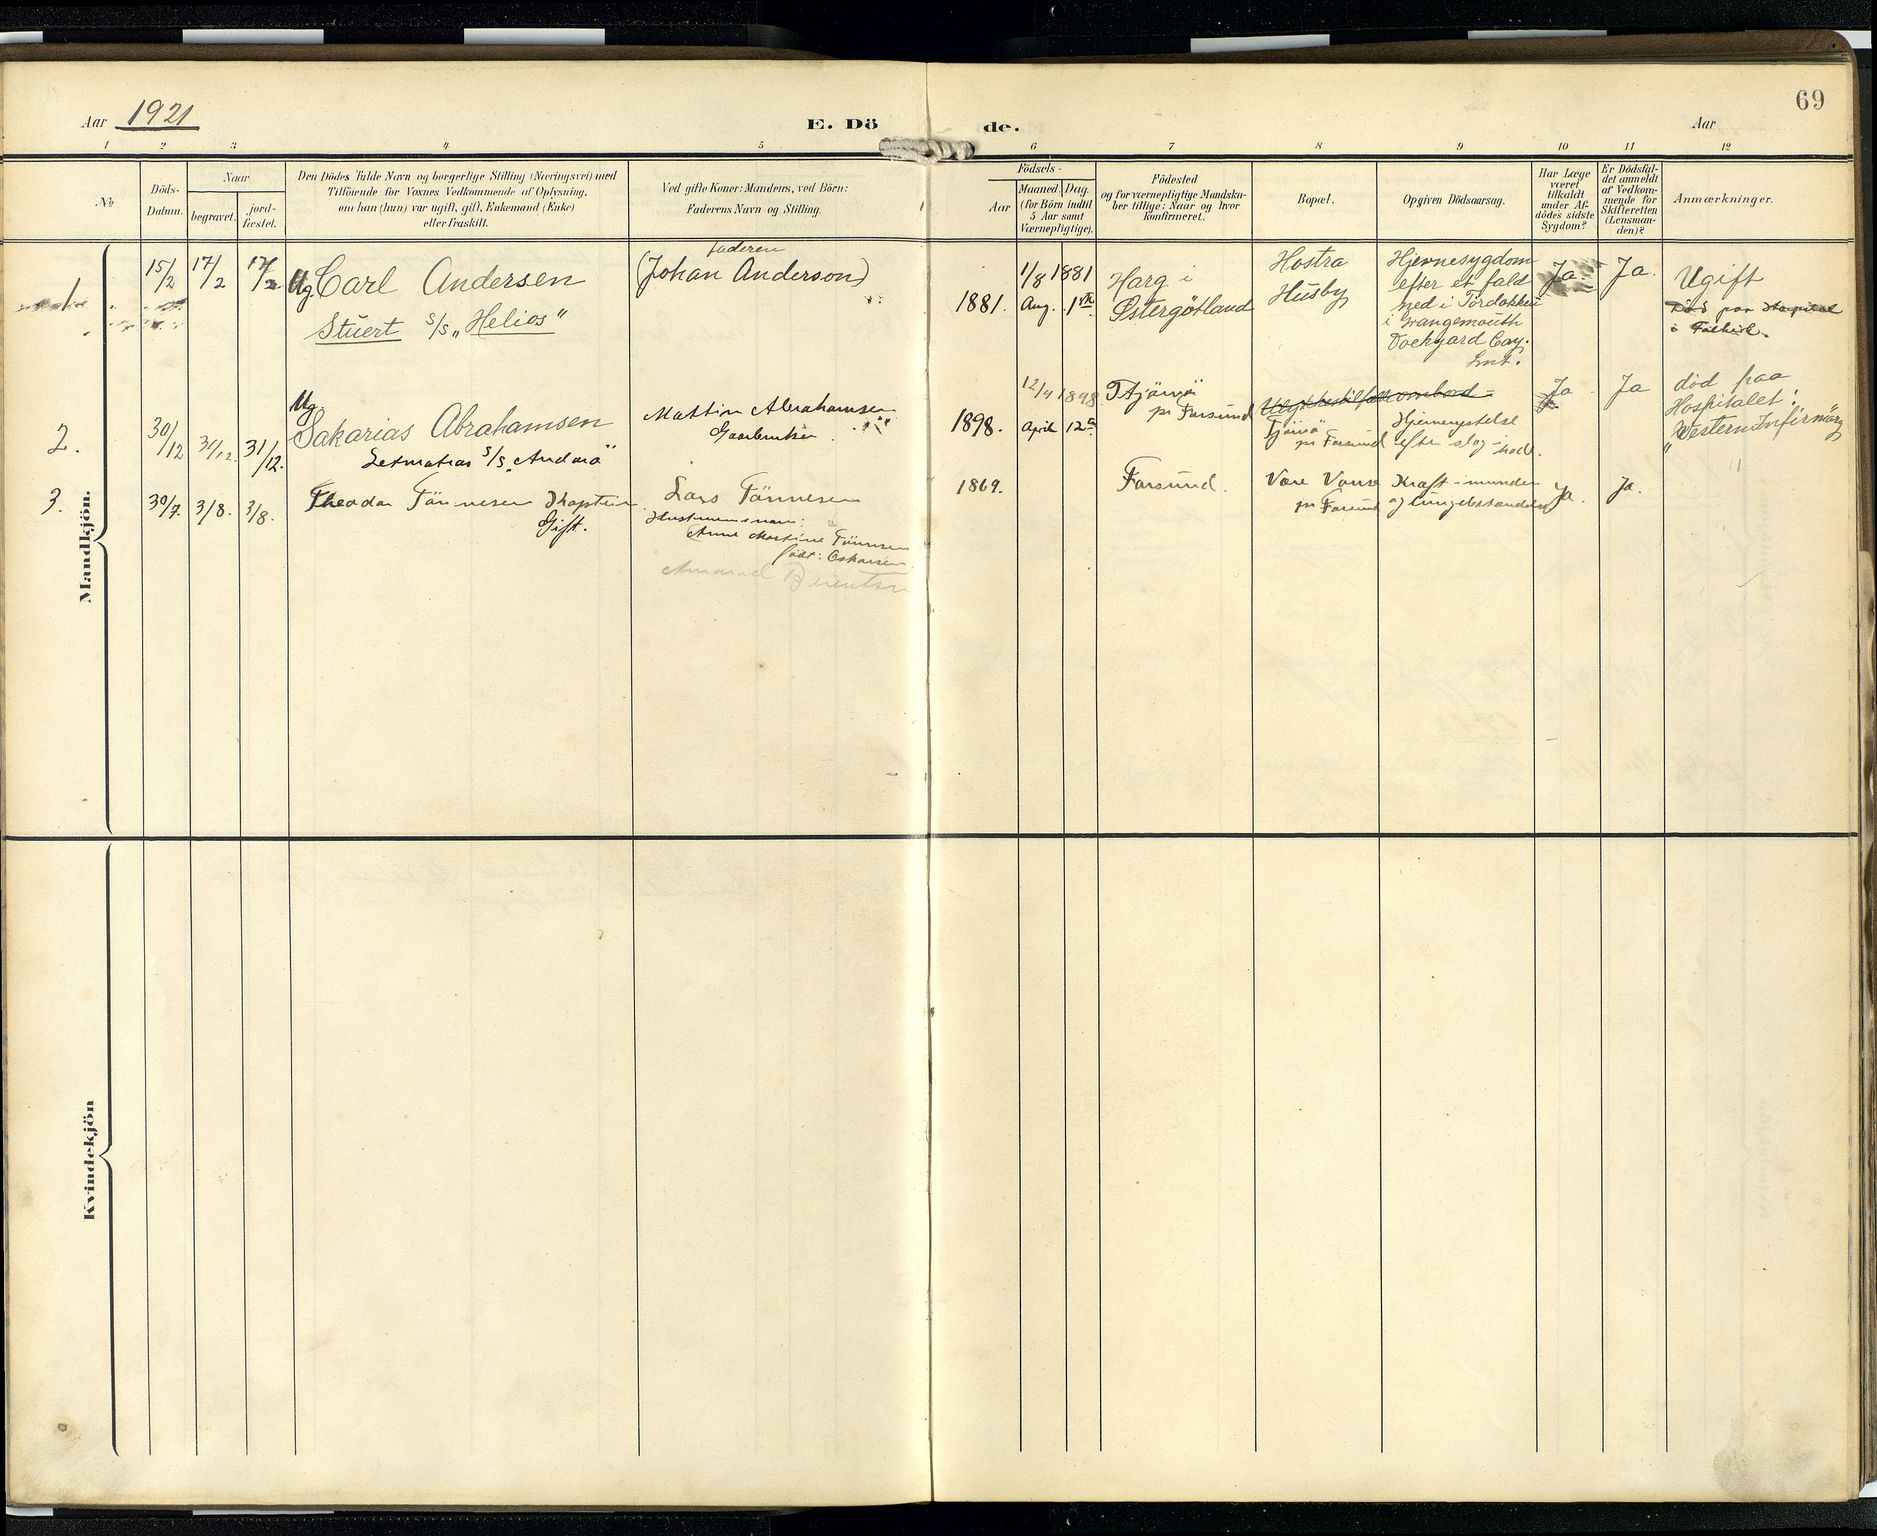 69
Aar 1921
E. Dö de.
Aar
1 2 3 4 5 6 7 8 9 10 11 12
No
Döds-
Datum.
Naar
begravet.
jord-
fæstet.
Den Dödes fulde Navn og borgerlige Stilling (Næringsvei) med
Tilföiende for Voxnes Vedkommende af Oplysning,
om han (hun) var ugift, gift, Enkemand (Enke)
eller fraskilt.
Ved gifte Koner: Mandens, ved Börn:
Faderens Navn og Stilling.
Födsels-
Aar
Maaned. Dag.
(for Börn indtil
5 Aar samt
Værnepligtige).
Födested
og for værnepligtige Mandska-
ber tillige: Naar og hvor
konfirmeret.
Bopæl.
Opgiven Dödsaarsag.
Har Læge
været
tilkaldt
under Af-
dödes sidste
Sygdom?
Er Dödsfal-
det anmeldt
af Vedkom-
mende for
Skifteretten
(Lensman-
den)?
Anmærkninger.
Mandkjön.
1
15/2
17/2
17/2
Ug Carl Andersen
Stuert S/S „Helios“
Faderen
(Johan Anderson)
1881.
1/8 1881
Aug. 1st
Harg i
Östergötland
Hostra
Husby
Hjernesygdom
efter et fald
ned i Tördokken
i Grangemouth
Dockyard Coy.
Lmt.
Ja
Ja.
Ugift
Död paa Hospital
i Falkirk.
2.
30/12
31/12.
31/12.
Ug
Sakarias Abrahamsen
Letmatros S/S „Andora“
Mattin Abrahamsen
Gaardbruker
1898.
12/4 1898
April 12te
Tjörvö
pr Farsund
Ulykkestilfælde ombord
Tjörvö
pr Farsund
Hjernerystelse
efter slag i hode.
Ja
Ja
död paa
Hospitalet:
„Western Infirmary“
3.
30/7.
3/8.
3/8.
Theodor Tönnesen Kaptein
Gift.
Lars Tönnesen
Hustruens navn:
Anne Martine Tönnesen
födt: Oskarsen
1869.
Farsund.
Vere Vanse
pr Farsund
Kræft i munden
og lungebetændelse
Ja.
Ja.
Kvindekjön